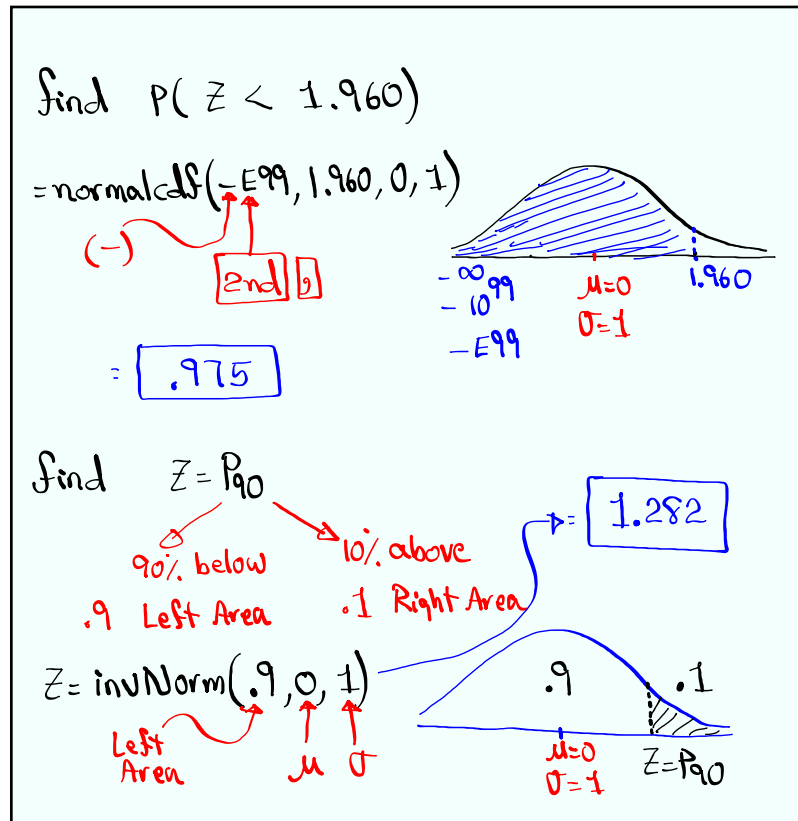 find P( Z < 1.960)
=normalcdf(-E99, 1.960, 0, 1)
(-)
2nd ,
-∞
-10^99
-E99
μ=0
σ=1
1.960
= .975
find Z=P90
90% below
.9 Left Area
10% above
.1 Right Area
= 1.282
Z=invNorm(.9,0,1)
Left
Area
μ σ
.9 .1
μ=0
σ=1
Z=P90